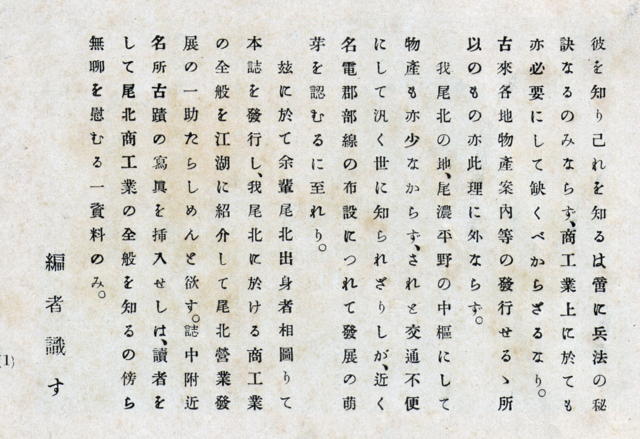 彼を知り己れを知るは啻に兵法の秘
訣なるのみならず、商工業上に於ても
亦必要にして缺くべからざるなり。
古來各地物產案内等の發行せるゝ所
以のもの亦此理に外ならず。
我尾北の地、尾濃平野の中樞にして
物產も亦少なからず、されど交通不便
にして汎く世に知られざりしが、近く
名電郡部線の布設につれて發展の萌
芽を認むるに至れり。
玆に於て余輩尾北出身者相圖りて
本誌を發行し、我尾北に於ける商工業
の全般を江湖に紹介して尾北營業發
展の一助たらしめんと欲す。誌中附近
名所古蹟の寫眞を挿入せしは、讀者を
して尾北商工業の全般を知るの傍ら
無聊を慰むる一資料のみ。
編者識す
(1)